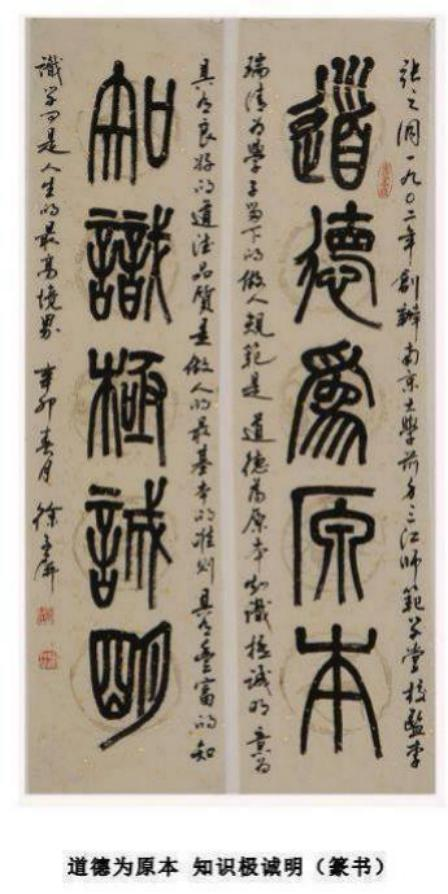 張之洞一九〇二年創辦南京大學前身三江师範学堂校監李
道德爲原本
瑞清为學子留下的做人規範是道德為原本知識極誠明意为
具有良好的道德品質是做人的最基本的准则具有豐富的知
知識極誠明
識学问是人生的最高境界 辛卯春月 徐
道德为原本 知识极诚明（篆书）